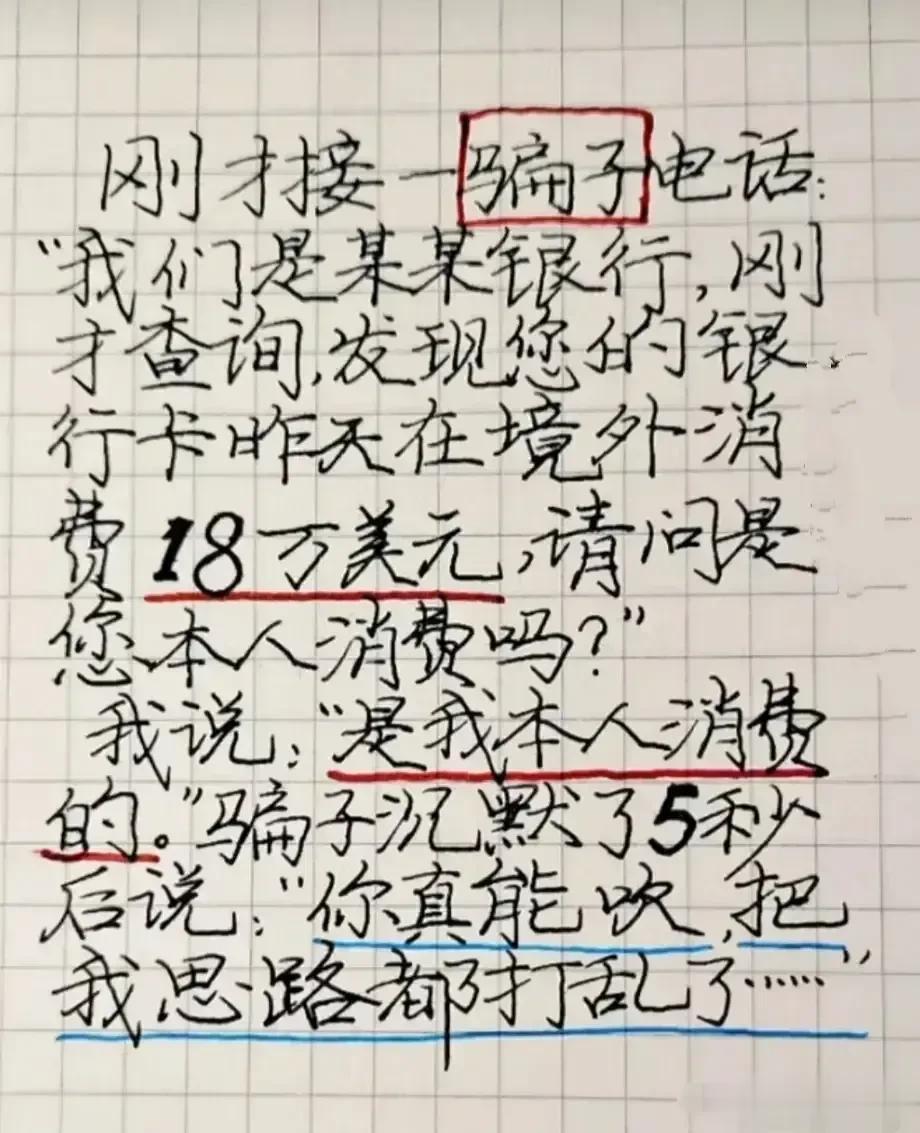 刚才接一骗子电话:
“我们是某某银行,刚
才查询,发现您的银
行卡昨天在境外消
费18万美元,请问是
您本人消费吗?”
我说:“是我本人消费
的。”骗子沉默了5秒
后说:“你真能吹,把
我思路都打乱了……”